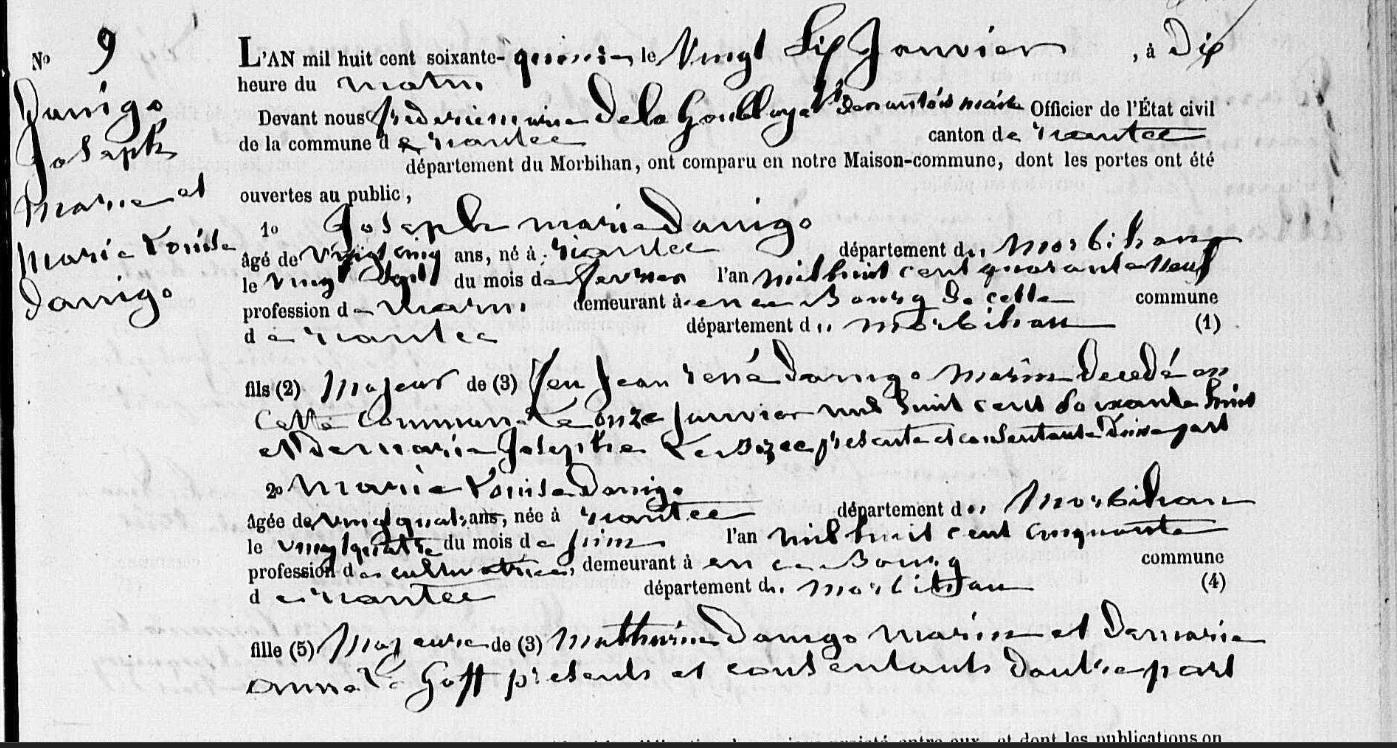 No 9
Danigo
Joseph
Marie et
Marie Louise
Danigo
L'AN mil huit cent soixante-quinze le Vingt Six Janvier, à Dix
heure du matin
Devant nous Frédéric marie De la Goublaye maire Officier de l'État civil
de la commune de canton de
département du Morbihan, ont comparu en notre Maison-commune, dont les portes ont été
ouvertes au public,
1o Joseph marie Danigo
âgé de vingt cinq ans, né à département du Morbihan
le Vingt Sept du mois de fevrier l'an mil huit cent quarante neuf
profession de marin demeurant à en ce Bourg de cette commune
d département du morbihan (1)
fils (2) Majeur de (3) feu Jean rené Danigo marin Decedé en
Cette Commune Le onze Janvier mil huit cent soixante huit
et de marie Josephe présente et consentante D'une part
2o Marie Louise Danigo
âgée de vingt quatre ans, née à département du Morbihan
le vingt quatre du mois de juin l'an mil huit cent cinquante
profession de cultivatrice demeurant à en ce Bourg commune
d département du morbihan (4)
fille (5) Majeure de (3) Mathurin Danigo marin et De marie
anne Le Goff présents et consentants D'autre part